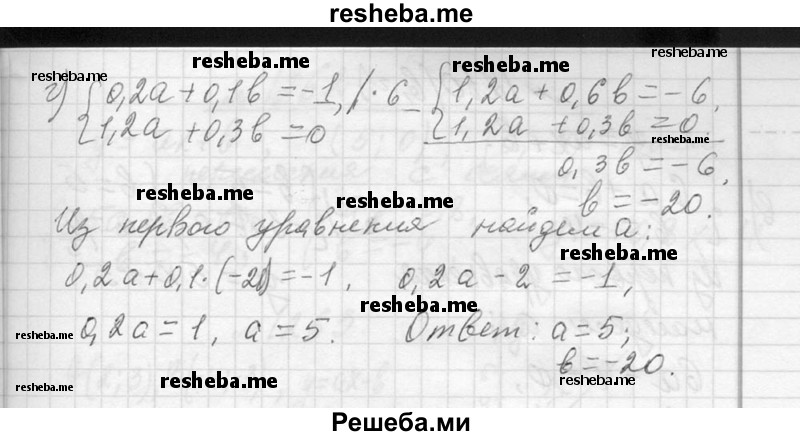 resheba.me
resheba.me resheba.me resheba.me
resheba.me
г) {0,2a + 0,1b = -1, /·6 _ {1,2a + 0,6b = -6,
{1,2a + 0,3b = 0 {1,2a + 0,3b = 0.
resheba.me
0,3b = -6,
resheba.me resheba.me
b = -20.
Из первого уравнения найдем a:
resheba.me
0,2a + 0,1·(-20) = -1, 0,2a - 2 = -1,
resheba.me
resheba.me 0,2a = 1, a = 5. Ответ: a = 5;
b = -20.
resheba.me resheba.me resheba.me
Решеба.ми